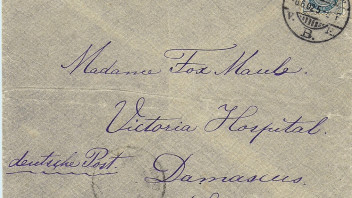 Madame Fox Maule.
Victoria Hospital.
deutsche Post.
Damascus.